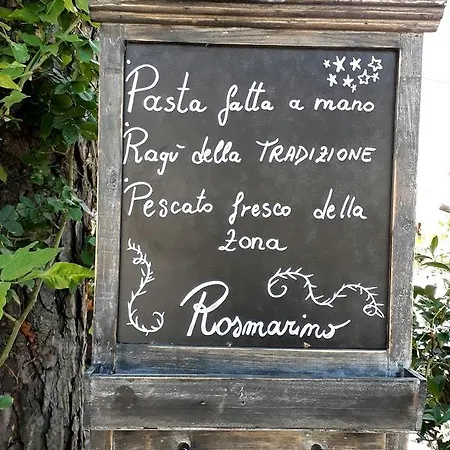 • Pasta fatta a mano
• Ragù della TRADIZIONE
• Pescato fresco della
zona
Rosmarino